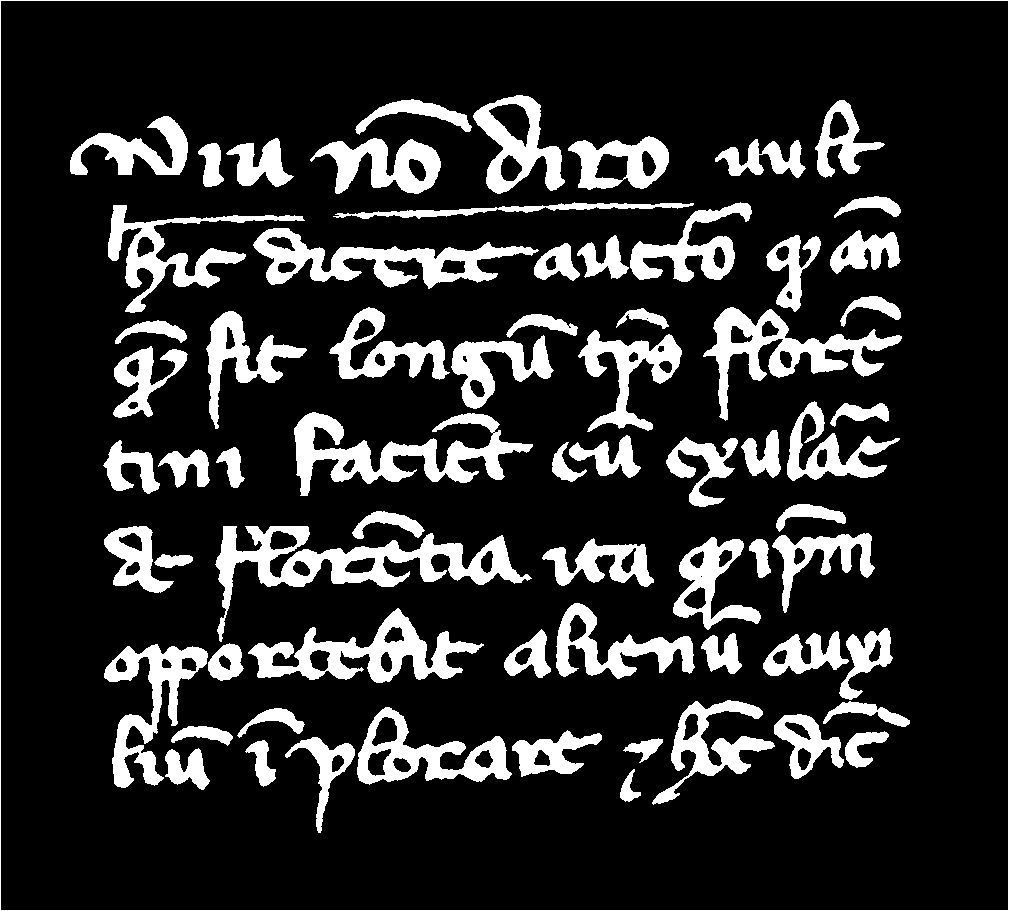 Piu nõ diro uult
hic dicere auctõ qp añ
qp̃ sit longũ tp̃s florẽ
tini faciẽt eũ exulãe
de florẽtia ita qp ip̃m
opportebit alienũ auxi
liũ ĩplorare ⁊ hoc̃ dic̃